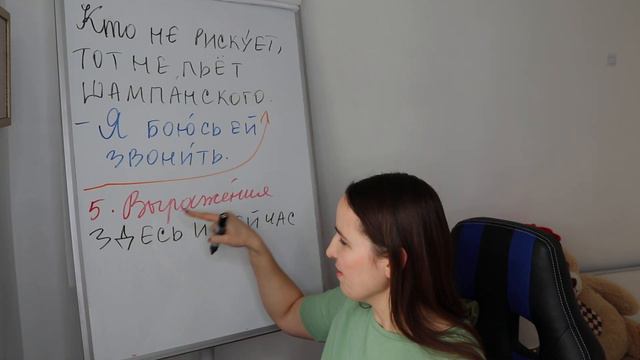 Кто не риску́ет,
тот не пьёт
шампа́нского.
- Я бою́сь ей
звони́ть.
5. Выраже́ния
здесь и сейчас